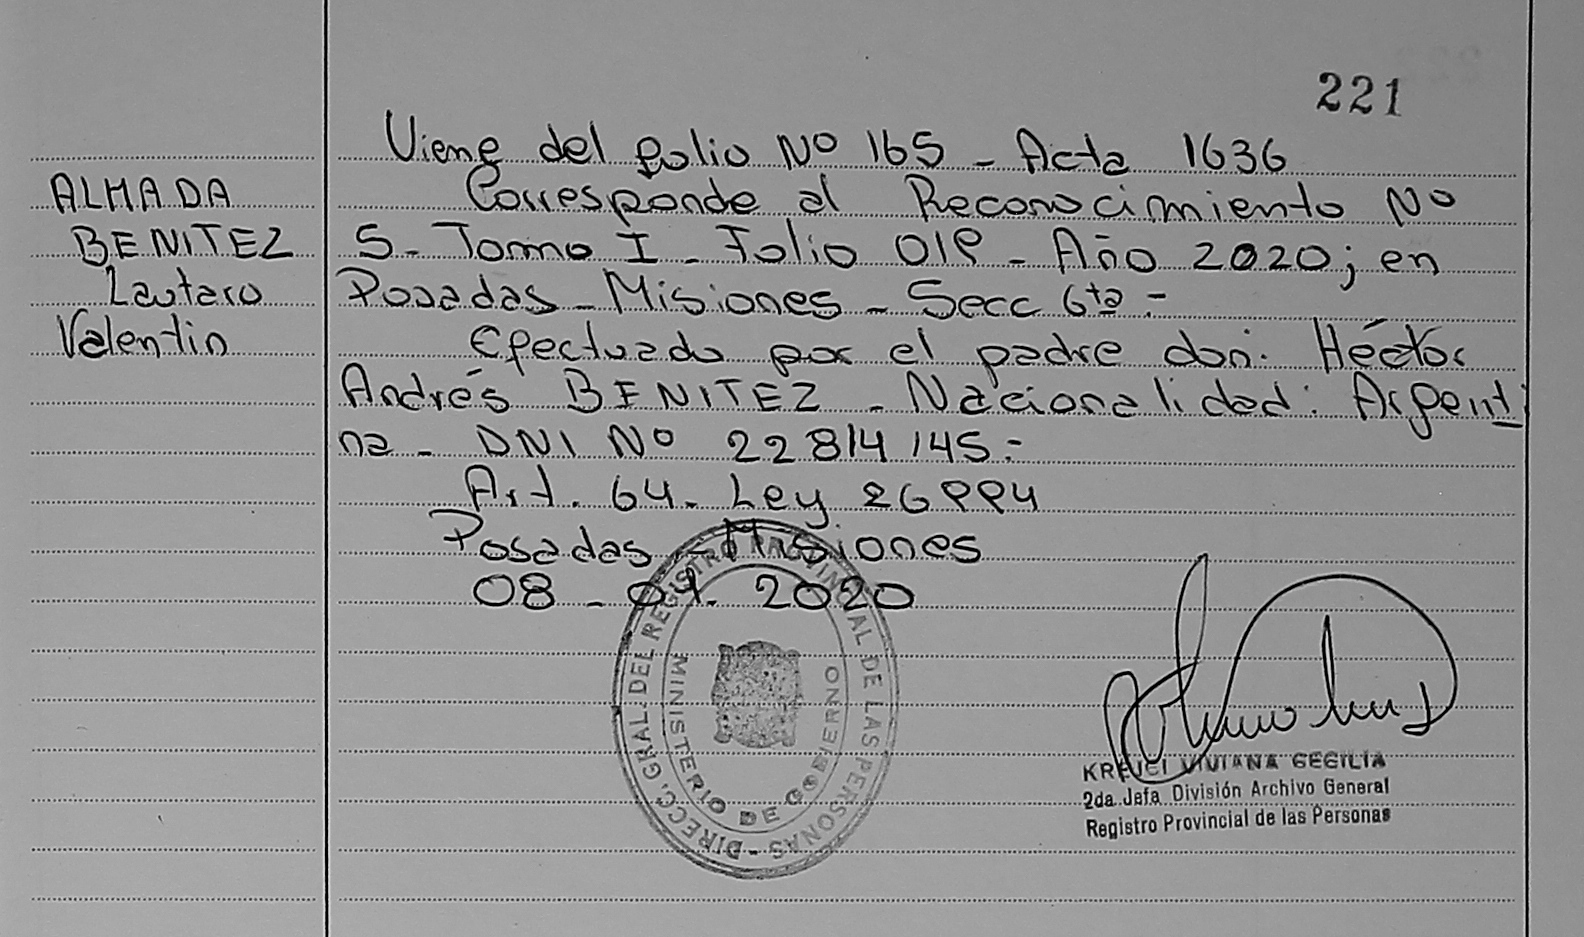 221
Viene del folio Nº 165 - Acta 1636
ALMADA
BENITEZ
Lautaro
Valentin
Corresponde al Reconocimiento Nº
5 - Tomo I - Folio 019 - Año 2020; en
Posadas - Misiones - Secc 6ta -
Efectuado por el padre don: Héctor
Andrés BENITEZ - Nacionalidad: Argenti
na - DNI Nº 22 814 145 -
Art. 64. Ley 26994
Posadas - Misiones
08 - 2020
DIRECC. GRAL. DEL REGISTRO PROVINCIAL DE LAS PERSONAS -
MINISTERIO DE GOBIERNO
KREJCI VIVIANA CECILIA
2da. Jefa División Archivo General
Registro Provincial de las Personas